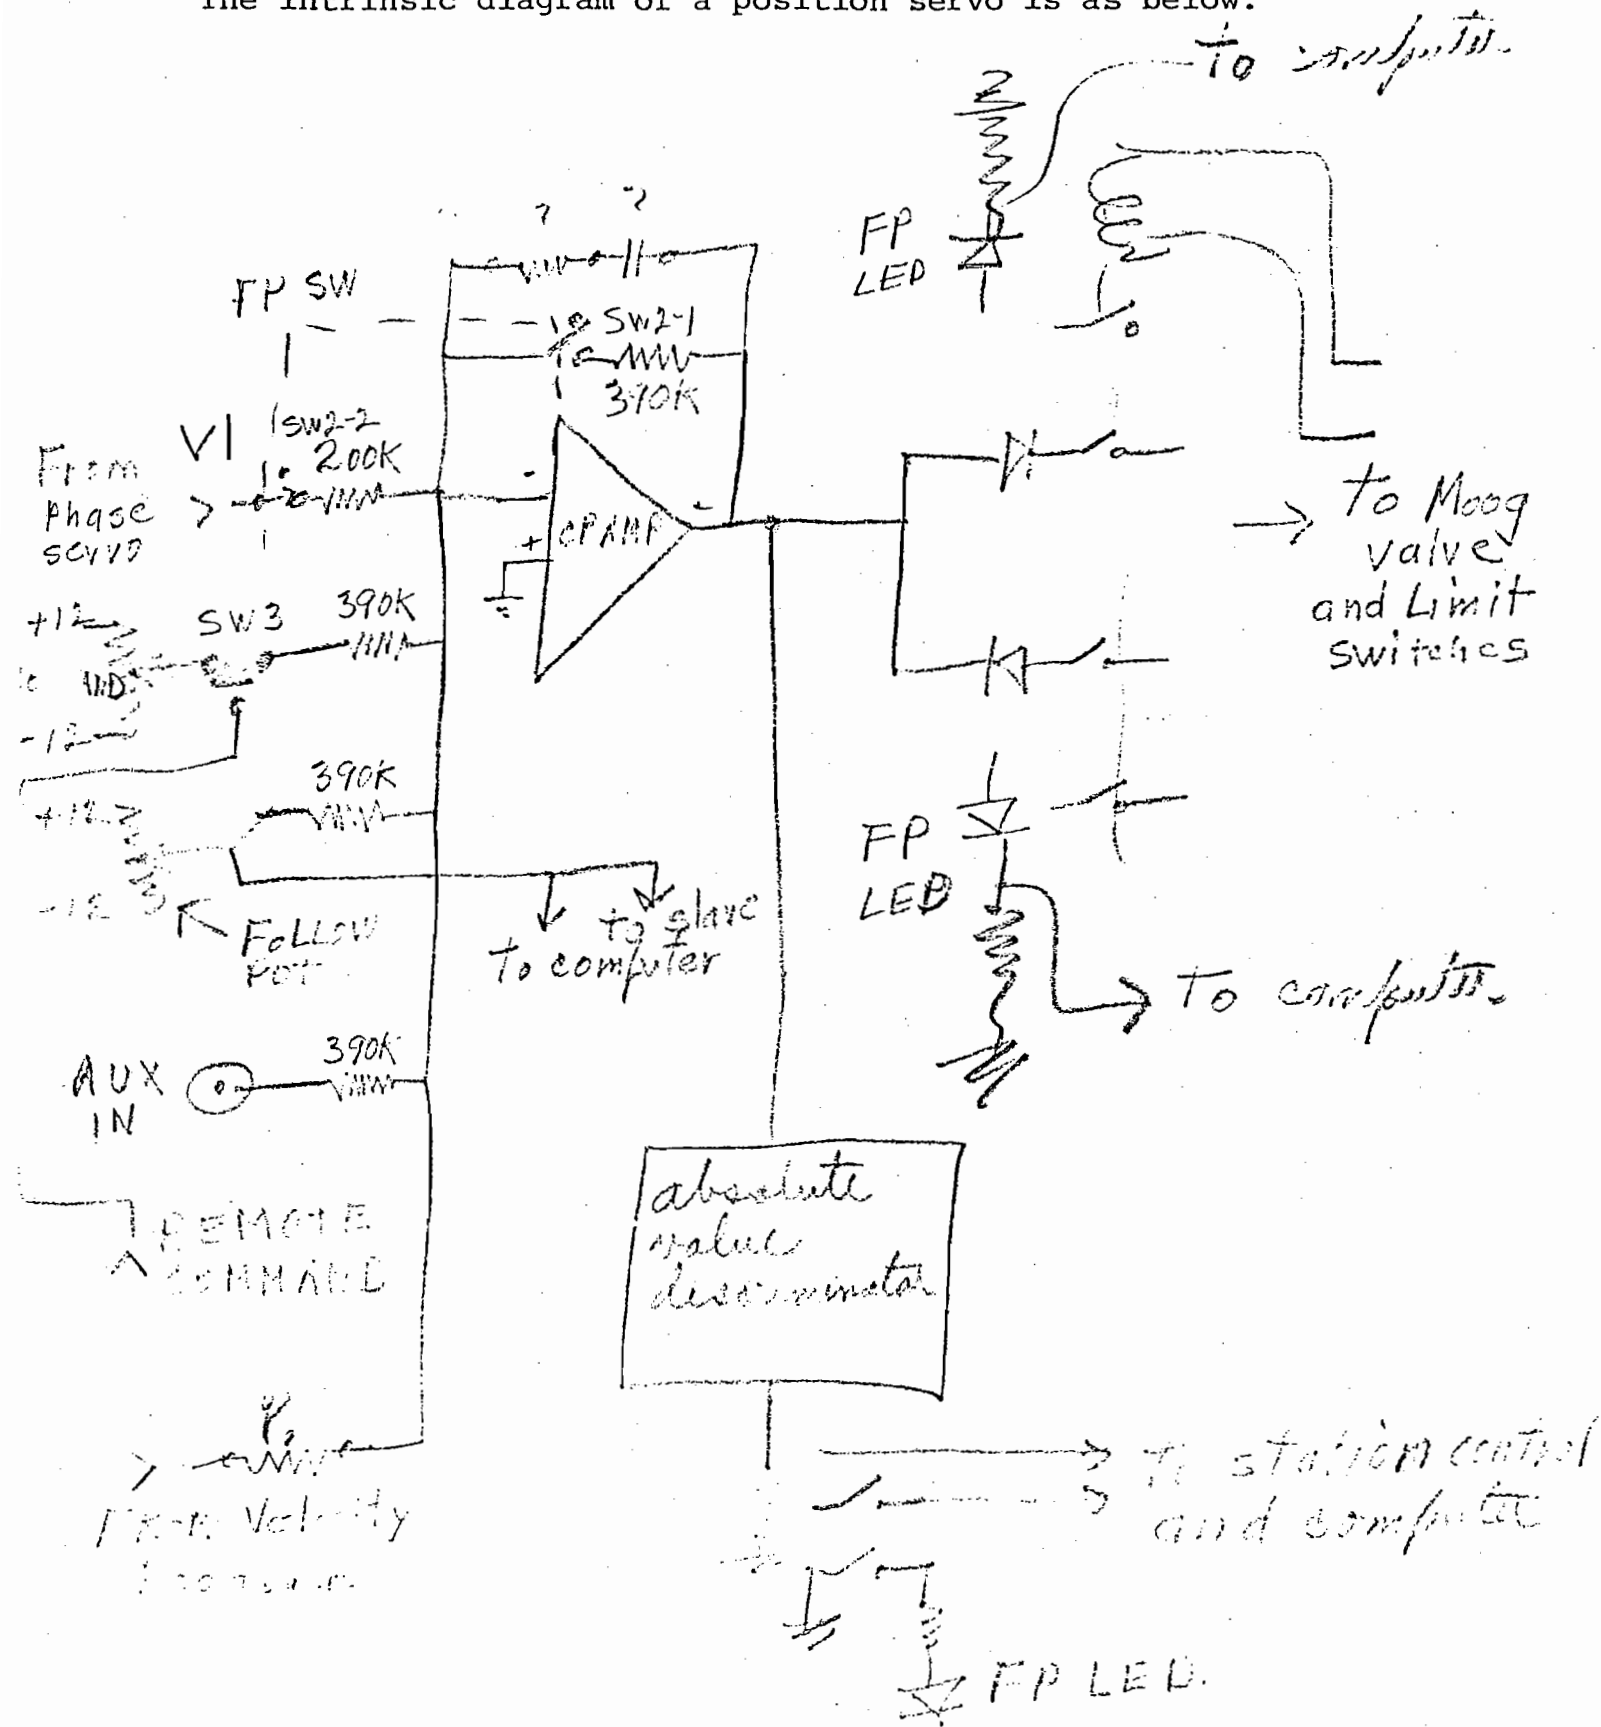 The intrinsic diagram of a position servo is as below.
To computer
?
?
FP
LED
FP SW
SW2-1
390K
V1
SW2-2
200K
From
Phase
servo
-
+
OPAMP
To Moog
valve
and Limit
switches
+12
SW3
390K
-12
390K
+12
-12
Follow
Pot
to slave
To computer
FP
LED
To computer
AUX
IN
390K
REMOTE
COMMAND
absolute
value
discriminator
From Velocity
To station control
and computer
FP LED.